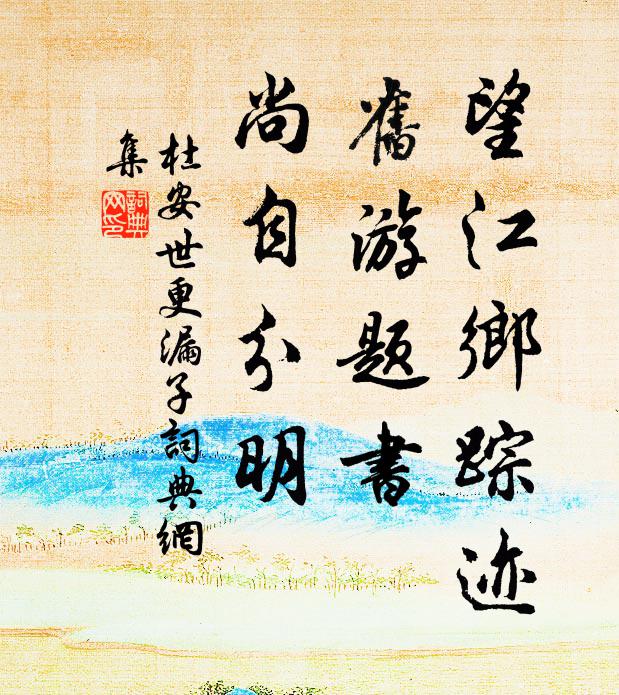 望江鄉踪迹
舊游題書
尚自分明
杜安世更漏子詞典網
集
詞典
网印